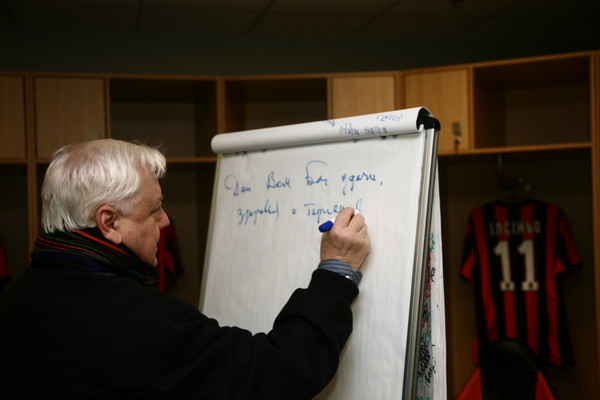 Дай Вам Бог удачи,
здоровья и терпения
ІЛСІНЬО
11